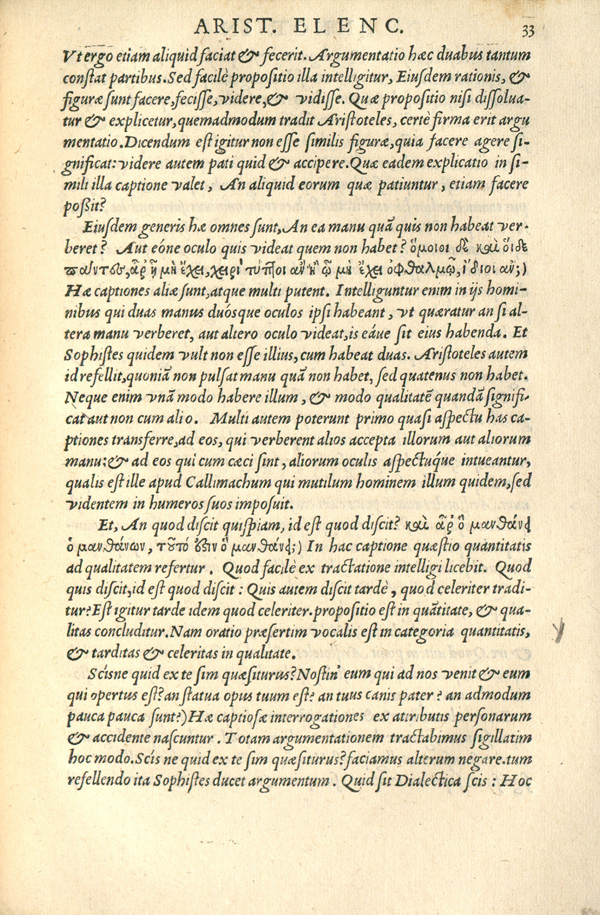 ARIST. ELENC. 33
Vt ergo etiam aliquid faciat & fecerit. Argumentatio hæc duabus tantum
constat partibus. Sed facilè propositio illa intelligitur, Eiusdem rationis, &
figuræ sunt facere, fecisse, videre, & vidisse. Quæ propositio nisi dissolua-
tur & explicetur, quemadmodum tradit Aristoteles, certè firma erit argu
mentatio. Dicendum est igitur non esse similis figuræ, quia facere agere si-
gnificat: videre autem pati quid & accipere. Quæ eadem explicatio in si-
mili illa captione valet, An aliquid eorum quæ patiuntur, etiam facere
poßit?
Eiusdem generis hæ omnes sunt, An ea manu quã quis non habeat ver-
beret? Aut eóne oculo quis videat quem non habet? ὅμοιοι δὲ καὶ οἵδε
πάντες, ἆρ' ᾗ μὴ ἔχει, χειρὶ τύπ οι ἂν ἢ ᾧ μὴ ἔχει ὀφθαλμῷ, ἴδιοι ἄν;)
Hæ captiones aliæ sunt, atque multi putent. Intelliguntur enim in ijs homi-
nibus qui duas manus duósque oculos ipsi habeant, vt quæratur an si al-
tera manu verberet, aut altero oculo videat, is eáue sit eius habenda. Et
Sophistes quidem vult non esse illius, cum habeat duas. Aristoteles autem
id refellit, quoniã non pulsat manu quã non habet, sed quatenus non habet.
Neque enim vnã modo habere illum, & modo qualitatẽ quandã signifi-
cat aut non cum alio. Multi autem poterunt primo quasi aspectu has ca-
ptiones transferre, ad eos, qui verberent alios accepta illorum aut aliorum
manu: & ad eos qui cum cæci sint, aliorum oculis aspectúque intueantur,
qualis est ille apud Callimachum qui mutilum hominem illum quidem, sed
videntem in humeros suos imposuit.
Et, An quod discit quispiam, id est quod discit? καὶ ἆρ' ὃ μανθάνει
ὁ μανθάνων, τοῦτό ἐστιν ὃ μανθάνει;) In hac captione quæstio quantitatis
ad qualitatem refertur. Quod facilè ex tractatione intelligi licebit. Quod
quis discit, id est quod discit: Quis autem discit tardè, quod celeriter tradi-
tur? Est igitur tarde idem quod celeriter. propositio est in quãtitate, & qua-
litas concluditur. Nam oratio præsertim vocalis est in categoria quantitatis,
& tarditas & celeritas in qualitate.
Scisne quid ex te sim quæsiturus? Nostin' eum qui ad nos venit & eum
qui opertus est? an statua opus tuum est? an tuus canis pater? an admodum
pauca pauca sunt?) Hæ captiosæ interrogationes ex attributis personarum
& accidente nascuntur. Totam argumentationem tractabimus sigillatim
hoc modo. Scis ne quid ex te sim quæsiturus? faciamus alterum negare. tum
refellendo ita Sophistes ducet argumentum. Quid sit Dialectica scis: Hoc